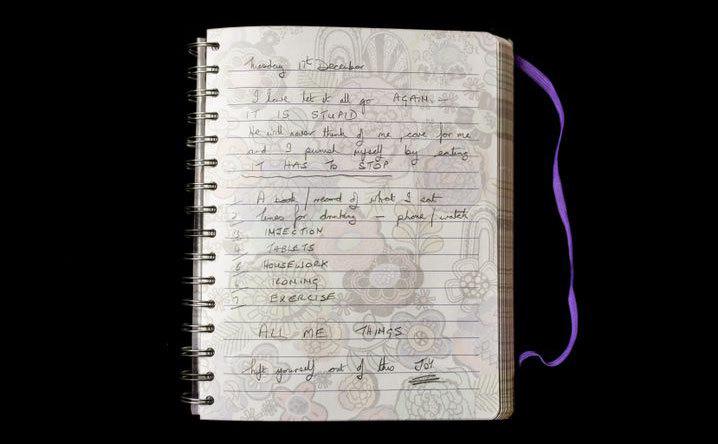 Tuesday 11th December
I have let it all go AGAIN -
IT IS STUPID
He will never think of me, care for me
and I punish myself by eating
IT HAS TO STOP
1 A book / record of what I eat
2 times for drinking - phone / watch
3 INJECTION
4 TABLETS
5 HOUSEWORK
6 IRONING
7 EXERCISE
ALL ME THINGS
lift yourself out of this JOY